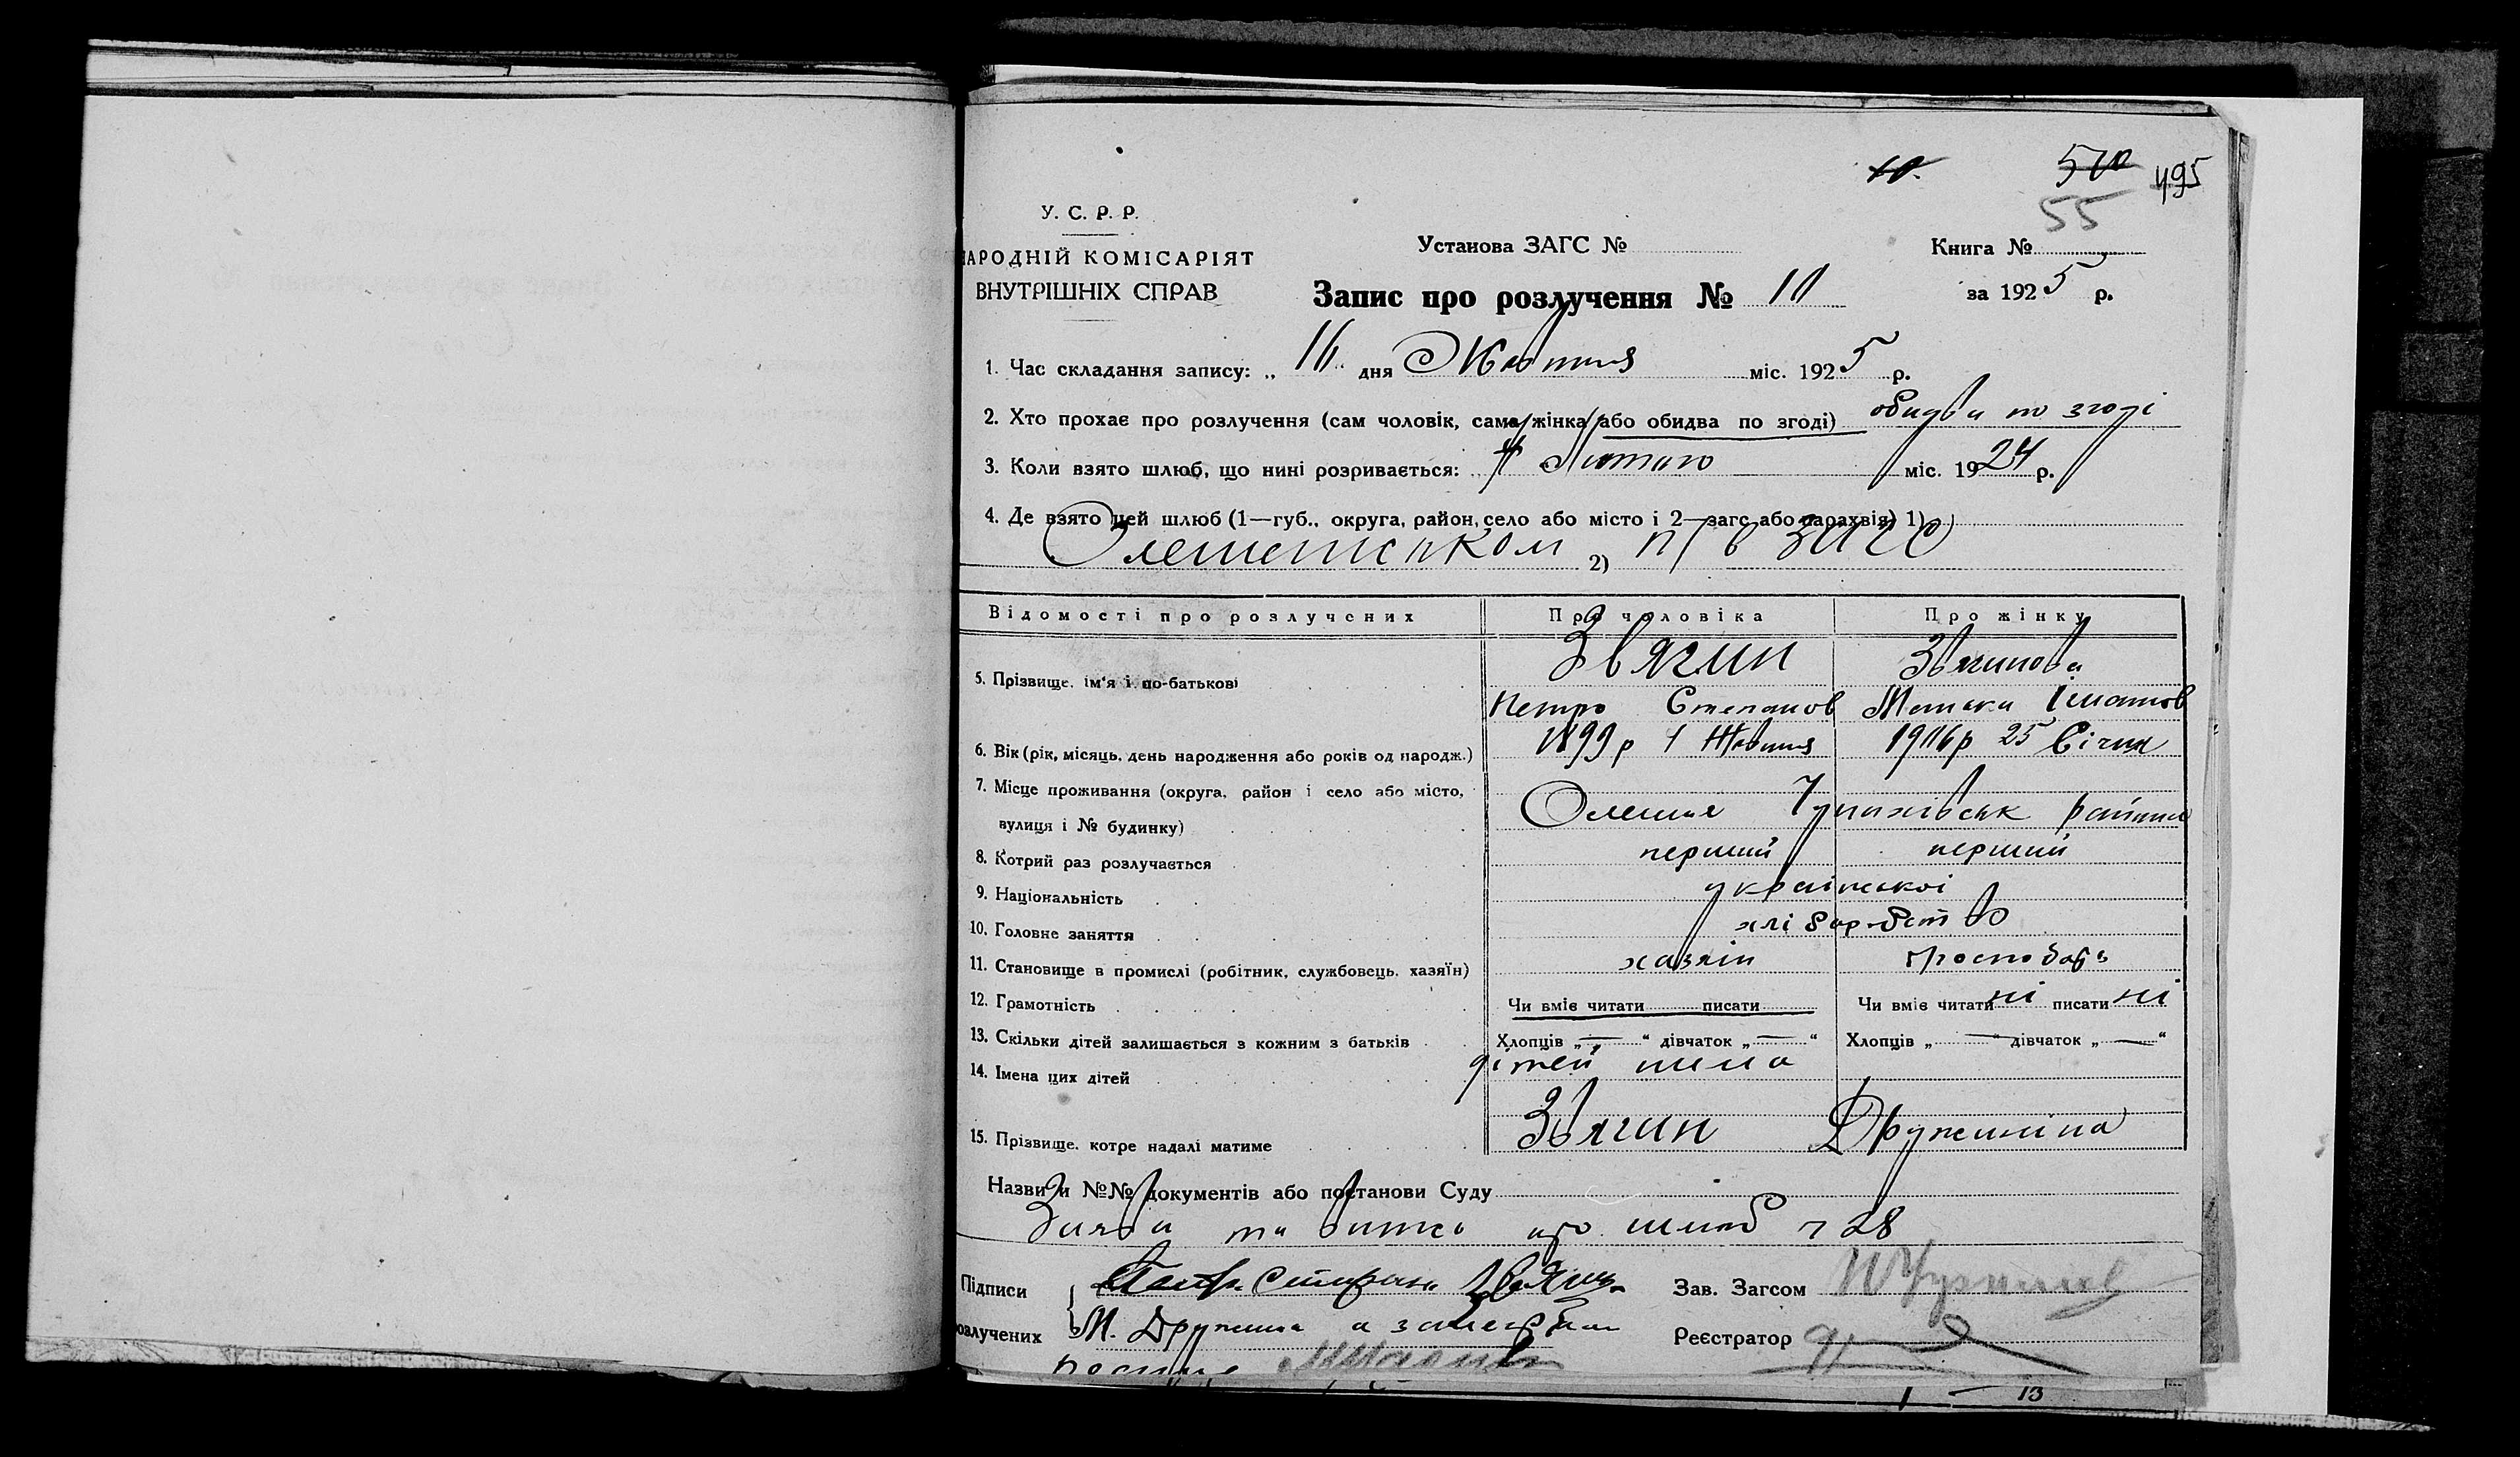 10.
510 495
55
У. С. Р. Р.
НАРОДНІЙ КОМІСАРІЯТ
ВНУТРІШНІХ СПРАВ
Установа ЗАГС №
Книга №
Запис про розлучення № 10
за 1925 р.
1. Час складання запису: „ 16 “ дня Жовтня міс. 1925 р.
2. Хто прохає про розлучення (сам чоловік, сама жінка або обидва по згоді) обидва по згоді
3. Коли взято шлюб, що нині розривається: Лютого міс. 1924 р.
4. Де взято цей шлюб (1—губ., округа, район, село або місто і 2—загс або парахвія) 1)
2) загс
Відомості про розлучених Про чоловіка Про жінку
5. Прізвище, ім'я і по-батькові Звягин Звягинова
Петро Степанов Игнатов
6. Вік (рік, місяць, день народження або років од народж.) 1899 р 1 Жовтня 1906 р 25 Січня
7. Місце проживання (округа, район і село або місто,
вулиця і № будинку) Олешня Чупахівськ района
8. Котрий раз розлучається перший перший
9. Національність української
10. Головне заняття хліборобство
11. Становище в промислі (робітник, службовець, хазяїн) хазяін господарь
12. Грамотність Чи вміє читати писати Чи вміє читати ні писати ні
13. Скільки дітей залишається з кожним з батьків Хлопців „ — “ дівчаток „ — “ Хлопців „ — “ дівчаток „ — “
14. Імена цих дітей дітей нема
15. Прізвище, котре надалі матиме Звягин Дружиніна
Назви и №№ документів або постанови Суду
Заява та витяг про шлюб ч 28
Підписи Зав. Загсом
розлучених М. Дружинина а за Реєстратор
13